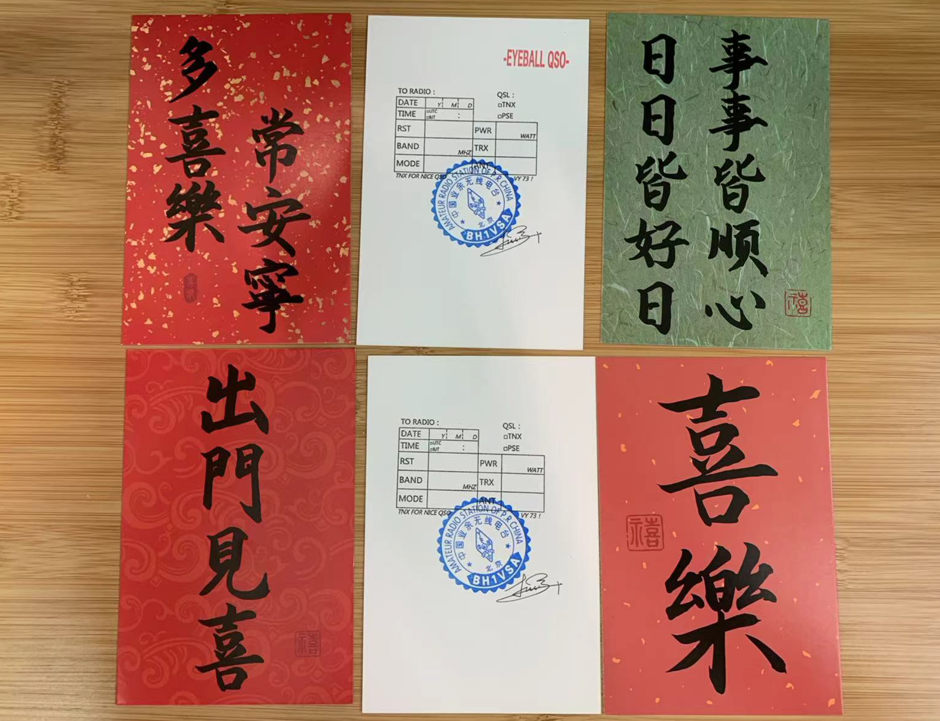 多喜樂
常安寧
-EYEBALL QSO-
TO RADIO :
QSL :
DATE Y M D
□TNX
TIME □UTC □BJT :
□PSE
RST PWR WATT
BAND MHZ TRX
MODE
TNX FOR NICE QSO VY 73 !
AMATEUR RADIO STATION OF P.R.CHINA
中国业余无线电台
北京
BH1VSA
事事皆顺心
日日皆好日
禧
出門見喜
禧
TO RADIO :
QSL :
DATE Y M D
□TNX
TIME □UTC □BJT :
□PSE
RST PWR WATT
BAND MHZ TRX
MODE ANT
TNX FOR NICE QSO VY 73 !
AMATEUR RADIO STATION OF P.R.CHINA
中国业余无线电台
北京
BH1VSA
喜樂
禧